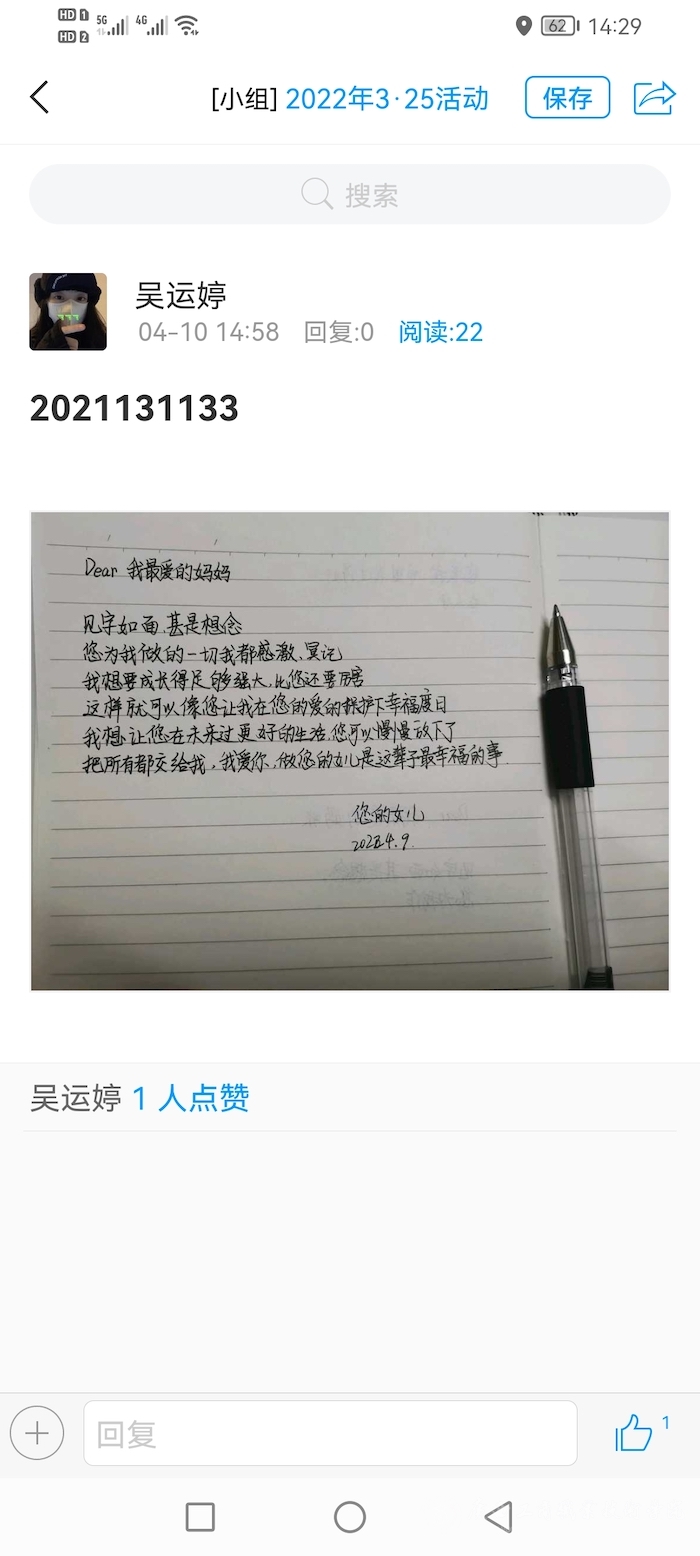 HD 1 5G 4G
HD 2
62 14:29
[小组] 2022年3·25活动 保存
搜索
吴运婷
04-10 14:58 回复:0 阅读:22
2021131133
Dear 我最爱的妈妈
见字如面,甚是想念
您为我做的一切我都感激、冥记
我想要成长得足够强大,比您还要厉害
这样就可以像您让我在您的爱的拥护下幸福度日
我想让您在未来过更好的生活,您可以慢慢放下了
把所有都交给我,我爱你,做您的女儿是这辈子最幸福的事.
您的女儿
2022.4.9.
吴运婷 1 人点赞
回复
1